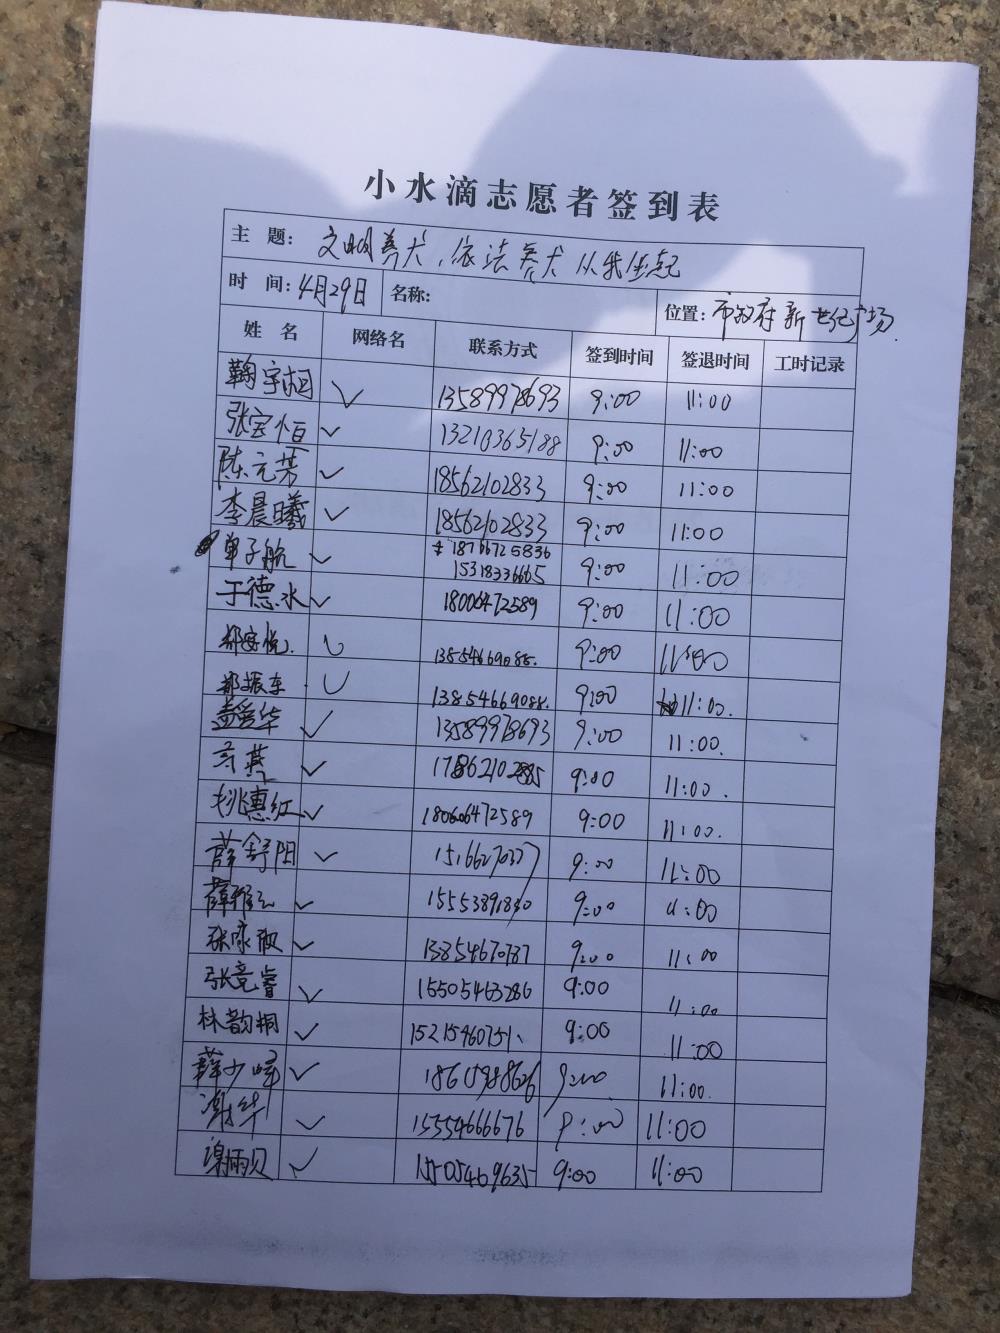 小水滴志愿者签到表
主 题: 文明养犬,依法养犬 从我做起
时 间: 4月29日 名称: 位置: 市政府新世纪广场
姓 名 网络名 联系方式 签到时间 签退时间 工时记录
鞠宇桓 ✓ 13589978693 9:00 11:00
张宝恒 ✓ 13210365188 9:00 11:00
陈元芳 ✓ 18562102833 9:00 11:00
李晨曦 ✓ 18562102833 9:00 11:00
单子航 ✓ 18766725836 9:00 11:00
15318336665
于德水 ✓ 18006472589 9:00 11:00
郝安悦 ✓ 13854669088. 9:00 11:00
郝振东 ✓ 13854669088. 9:00 11:00.
孟爱华 ✓ 13589978693 9:00 11:00.
燕 ✓ 17862102885 9:00 11:00.
姚惠红 ✓ 18006472589 9:00 11:00.
薛舒阳 ✓ 9:00 11:00
薛 ✓ 15553891830 9:00 11:00
张 ✓ 13854670787 9:00 11:00
张竞睿 ✓ 15505463286 9:00 11:00
林韵桐 ✓ 15215460751 9:00 11:00
薛少峰 ✓ 9:00 11:00.
谢华 ✓ 15554666676 9:00 11:00
谢雨贝 ✓ 15505469635 9:00 11:00